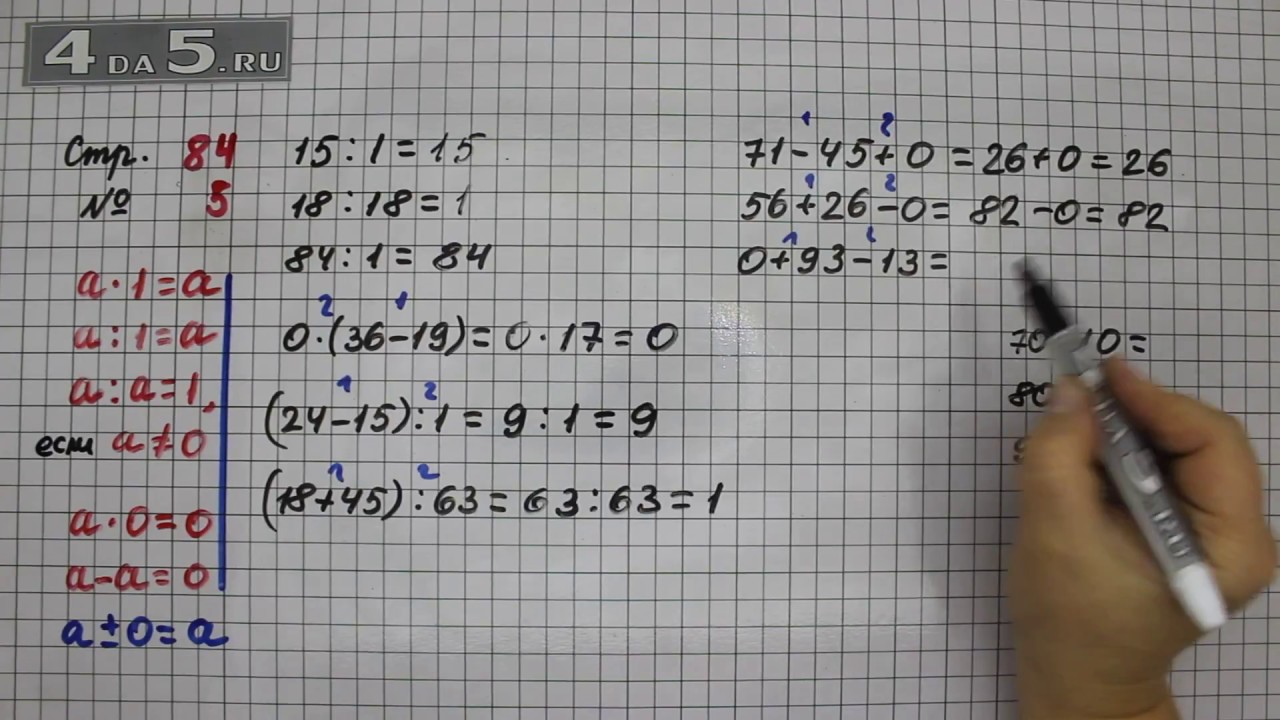 4DA5.RU
Стр. 84
№ 5
a · 1 = a
a : 1 = a
a : a = 1,
если a ≠ 0
a · 0 = 0
a - a = 0
a ± 0 = a
15 : 1 = 15
18 : 18 = 1
84 : 1 = 84
2 1
0 · (36 - 19) = 0 · 17 = 0
1 2
(24 - 15) : 1 = 9 : 1 = 9
1 2
(18 + 45) : 63 = 63 : 63 = 1
1 2
71 - 45 + 0 = 26 + 0 = 26
1 2
56 + 26 - 0 = 82 - 0 = 82
1 2
0 + 93 - 13 =
70 10 =
80